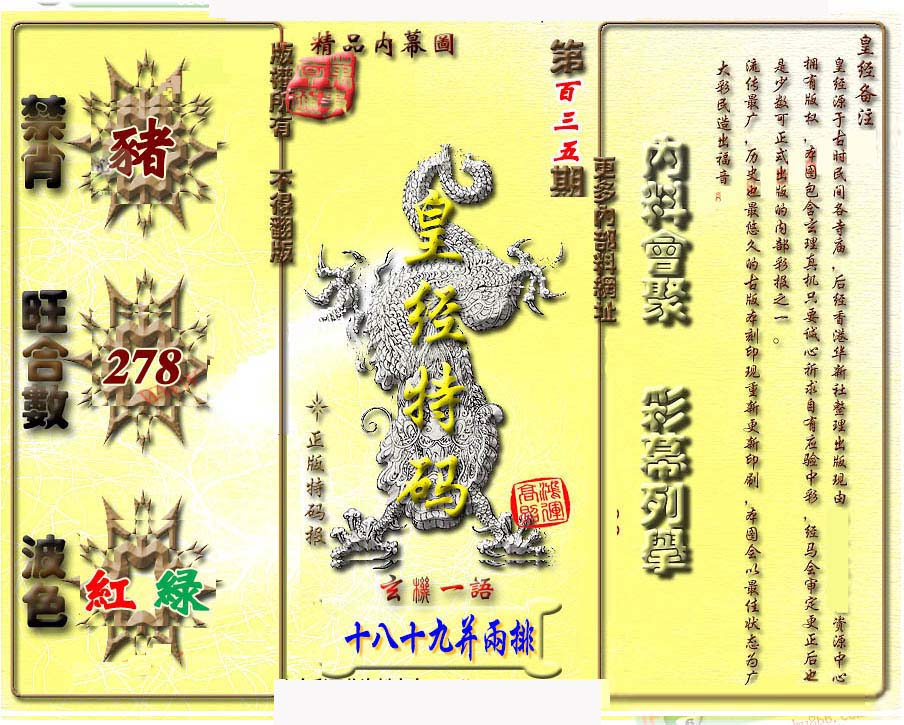 皇经备注
皇经源于古时民间各寺庙,后经香港华新社整理出版现由
资源中心
拥有版权,本图包含玄理真机只要诚心祈求自有应验中彩,经马会审定更正后也
是少数可正式出版的内部彩报之一。
流传最广,历史也最悠久的古版本刻印现重新更新印刷,本图会以最佳状态为广
大彩民造出福音
内料會聚
彩幕列舉
更多內部料網址
第百三五期
精品内幕圖
版權所有 不得翻版
皇经特码
正版特码报
鴻運
高照
玄機一語
十八十九并兩排
禁肖
豬
旺合數
278
波色
紅 綠